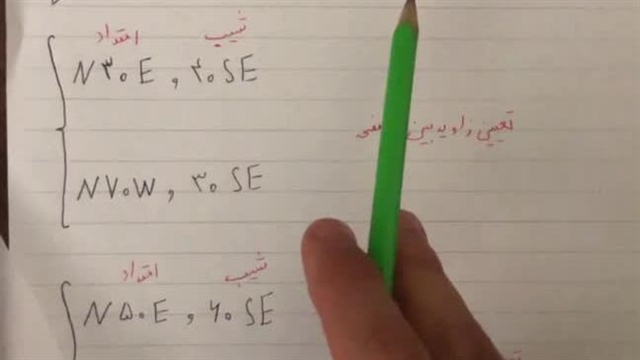 امتداد شیب
N۳۰E , ۴۰SE
تعیین زاویه بین
N۷۰W , ۳۰SE
امتداد شیب
N۵۰E , ۶۰SE